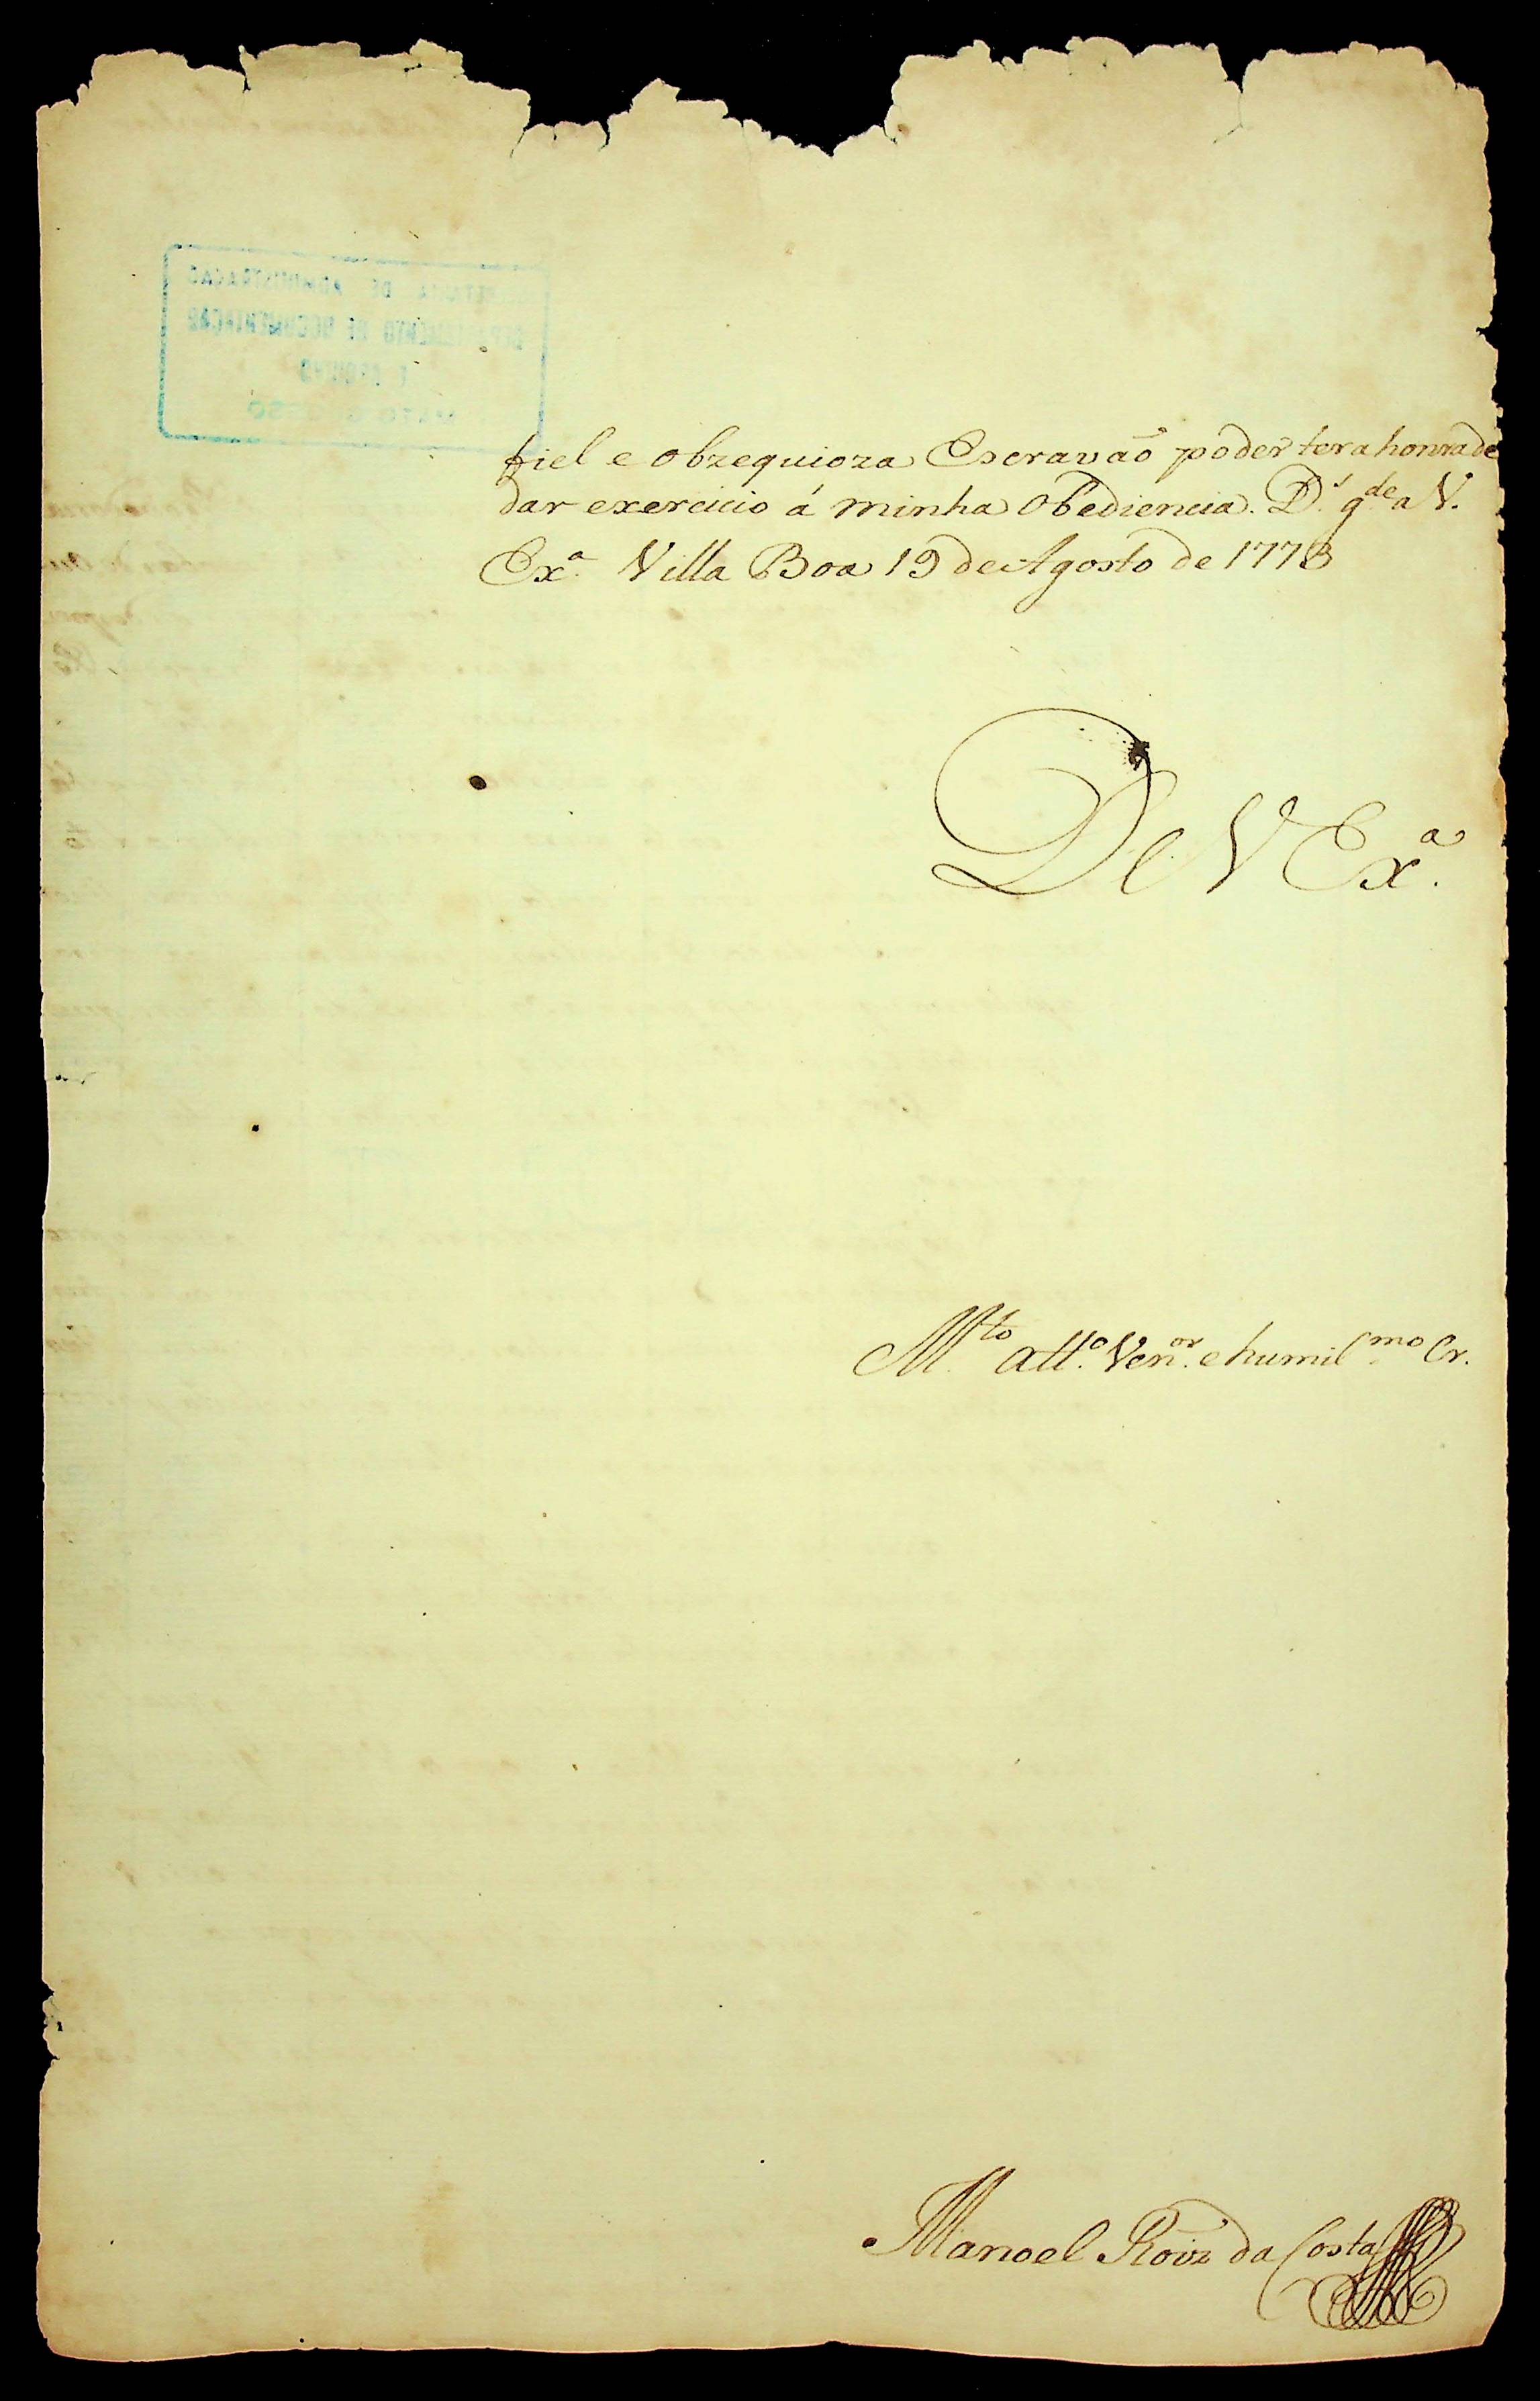 fiel e obzequioza Escravaõ poder ter a honra de
dar exercicio á minha obediencia. D.s g.de a V.
Ex.a Villa Boa 19 de Agosto de 1773
De V Ex.a
M.to att.o Ven.or e humil.mo Cr.
Manoel Roiz da Costa